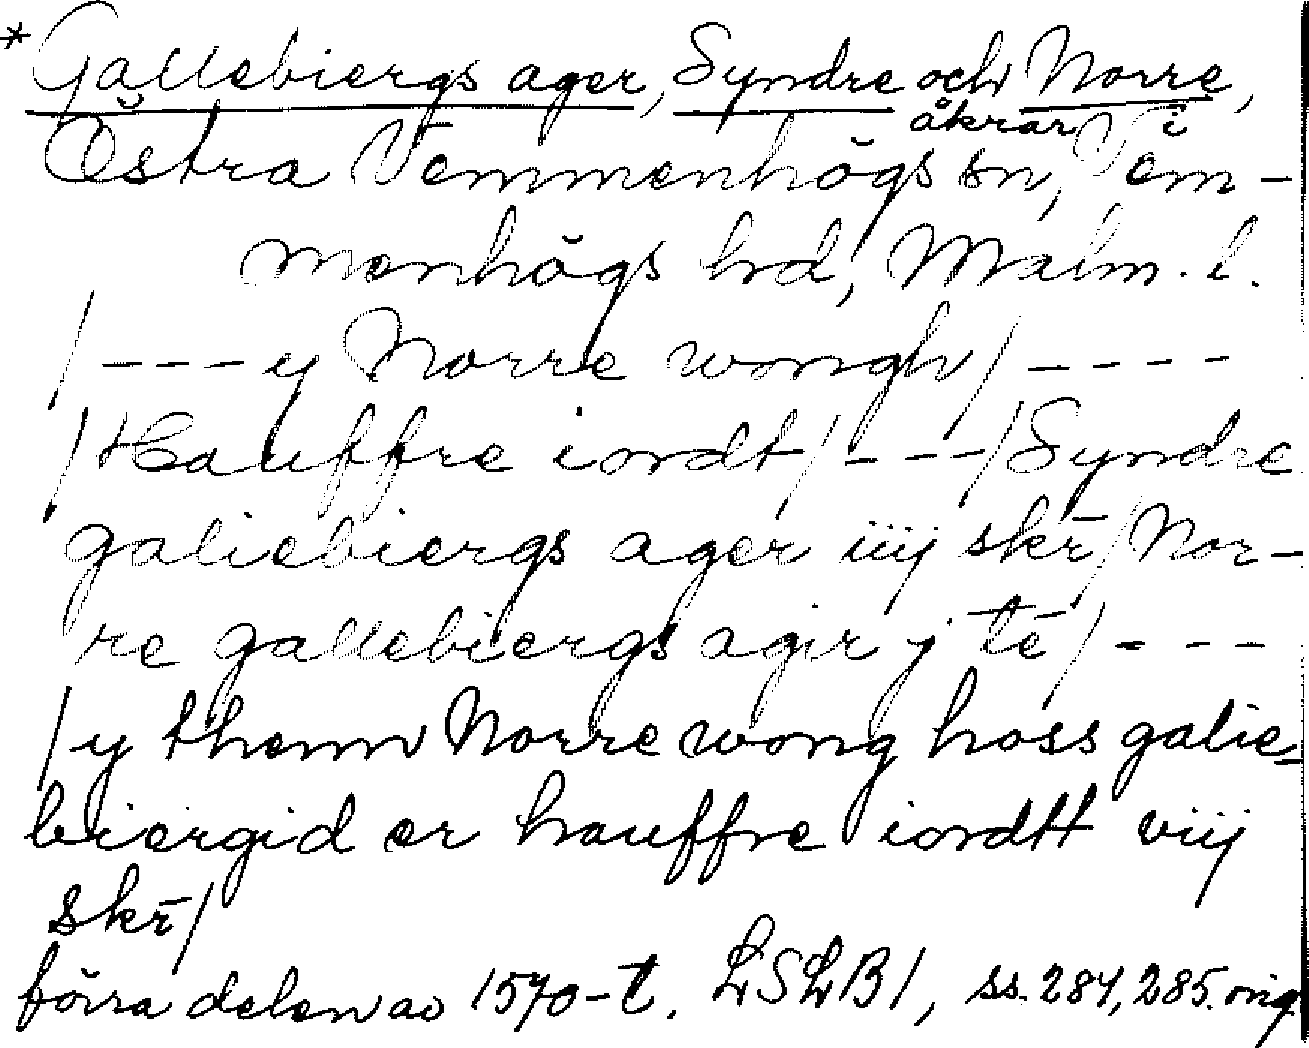 * Gallebiergs ager, Syndre och Norre,
åkrar i
Östra Vemmenhögs sn, Vem-
menhögs hd, Malm. l.
/ - - - y Norre wongh / - - - -
/ Hauffre iordt / - - - / Syndre
galiebiergs ager iiij skr̄ / Nor-
re gallebiergs agir j tē / - - -
/ y thenn Norre wong hoss galie-
biergid er hauffre iordtt viij
skr̄ /
förra delen av 1570-t. LSLB 1, ss. 284, 285. orig.